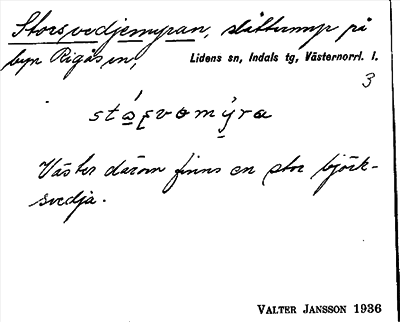 Storsvedjemyran, slåttermyr på
byn Rigåsen, Lidens sn, Indals tg, Västernorrl. l.
3
Väster därom finns en stor björk-
svedja.
VALTER JANSSON 1936